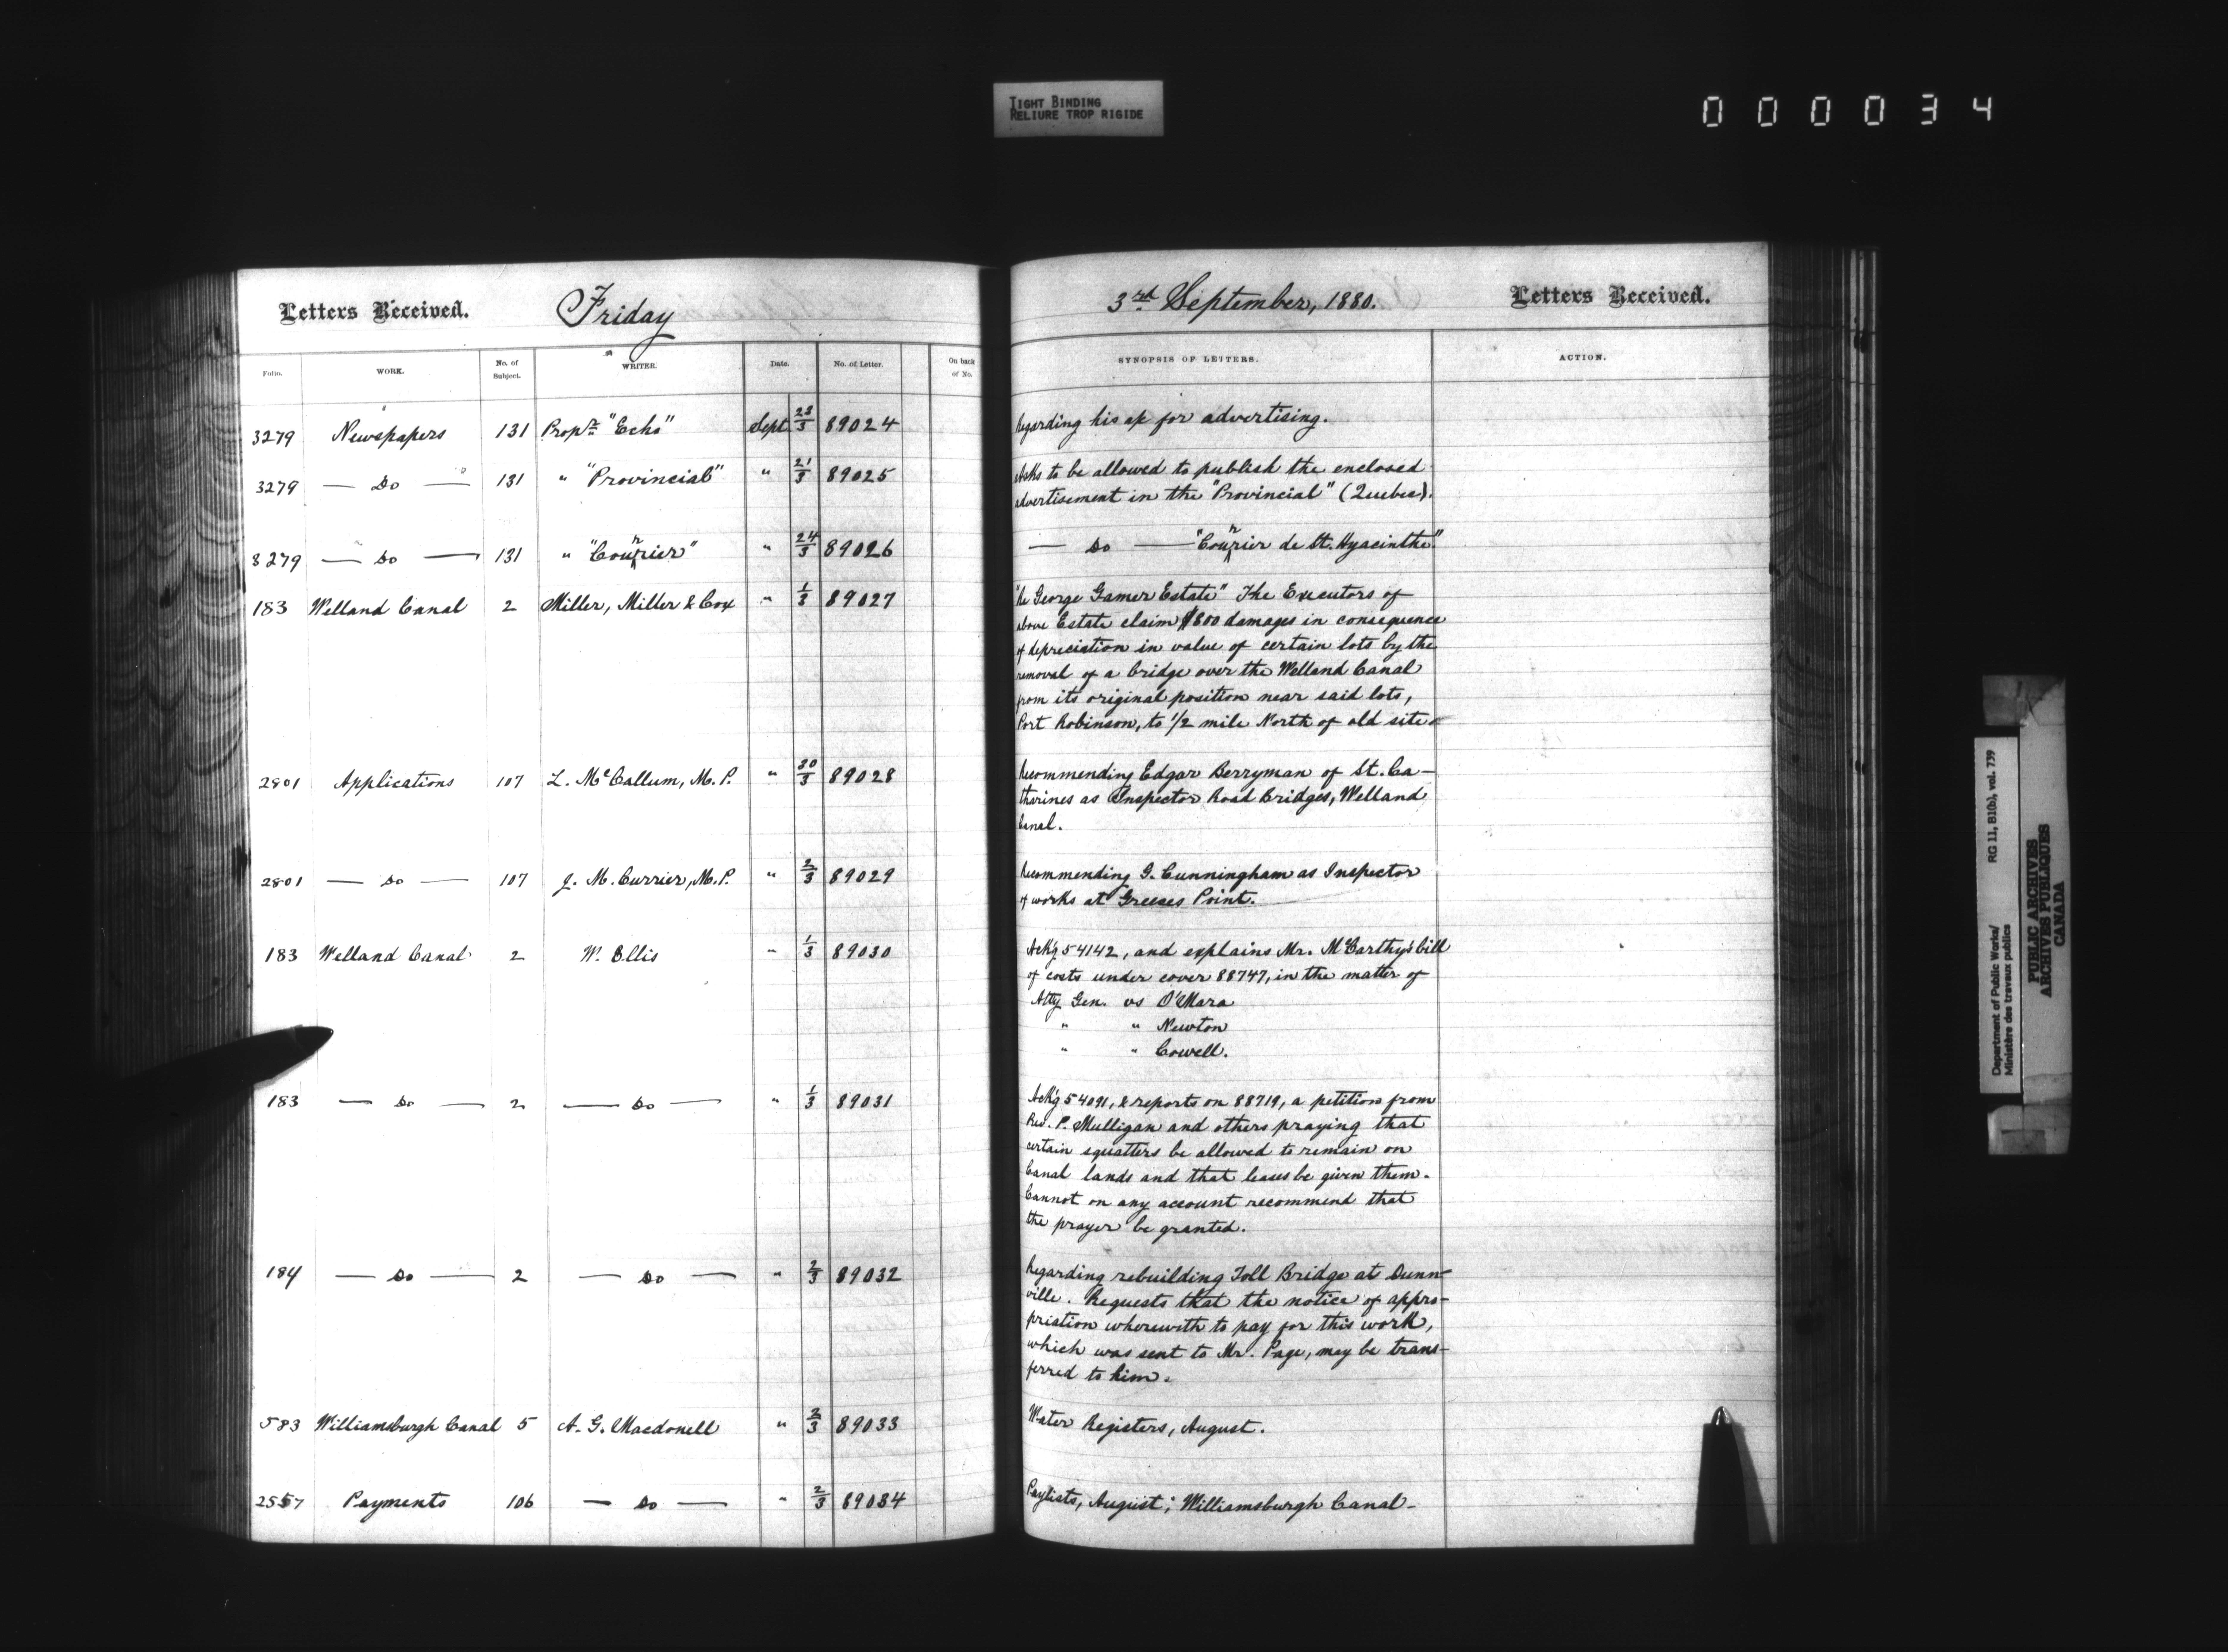 TIGHT BINDING
RELIURE TROP RIGIDE
000034
Letters Received. Friday
3rd September, 1880. Letters Received.
Folio. WORK. No. of Subject. WRITER. Date. No. of Letter. On back of No.
SYNOPSIS OF LETTERS. ACTION.
3279 Newspapers 131 Propr. "Echo" Sept 23/3 89024
Regarding his a/c for advertising.
3279 — Do — 131 " "Provincial" " 21/3 89025
Asks to be allowed to publish the enclosed
advertisement in the "Provincial" (Quebec).
3279 — Do — 131 " "Courrier" " 24/3 89026
— Do — "Courrier de St. Hyacinthe."
183 Welland Canal 2 Miller, Miller & Cox " 1/3 89027
"Re George Gamer Estate" The Executors of
above Estate claim $800 damages in consequence
of depreciation in value of certain lots by the
removal of a bridge over the Welland Canal
from its original position near said lots,
Port Robinson, to 1/2 mile North of old site.
2801 Applications 107 L. McCallum, M.P. " 30/3 89028
Recommending Edgar Berryman of St. Ca-
tharines as Inspector Road Bridges, Welland
Canal.
2801 — Do — 107 J. M. Currier, M.P. " 2/3 89029
Recommending G. Cunningham as Inspector
of works at Greeces Point.
183 Welland Canal 2 W. Ellis " 1/3 89030
Ackg 54142, and explains Mr. McCarthy's bill
of costs under cover 88747, in the matter of
Atty Gen. vs O'Mara
" " Newton
" " Cowell.
183 — Do — 2 — Do — " 1/3 89031
Ackg 54091, & reports on 88719, a petition from
Rev. P. Mulligan and others praying that
certain squatters be allowed to remain on
Canal lands and that leases be given them.
Cannot on any account recommend that
the prayer be granted.
184 — Do — 2 — Do — " 2/3 89032
Regarding rebuilding Toll Bridge at Dunn-
ville. Requests that the notice of appro-
priation wherewith to pay for this work,
which was sent to Mr. Page, may be trans-
ferred to him.
583 Williamsburgh Canal 5 A. G. Macdonell " 2/3 89033
Water Registers, August.
2557 Payments 106 — Do — " 2/3 89034
Paylists, August; Williamsburgh Canal-
Department of Public Works/ RG 11, B1(b), vol. 739
Ministère des travaux publics
PUBLIC ARCHIVES
ARCHIVES PUBLIQUES
CANADA